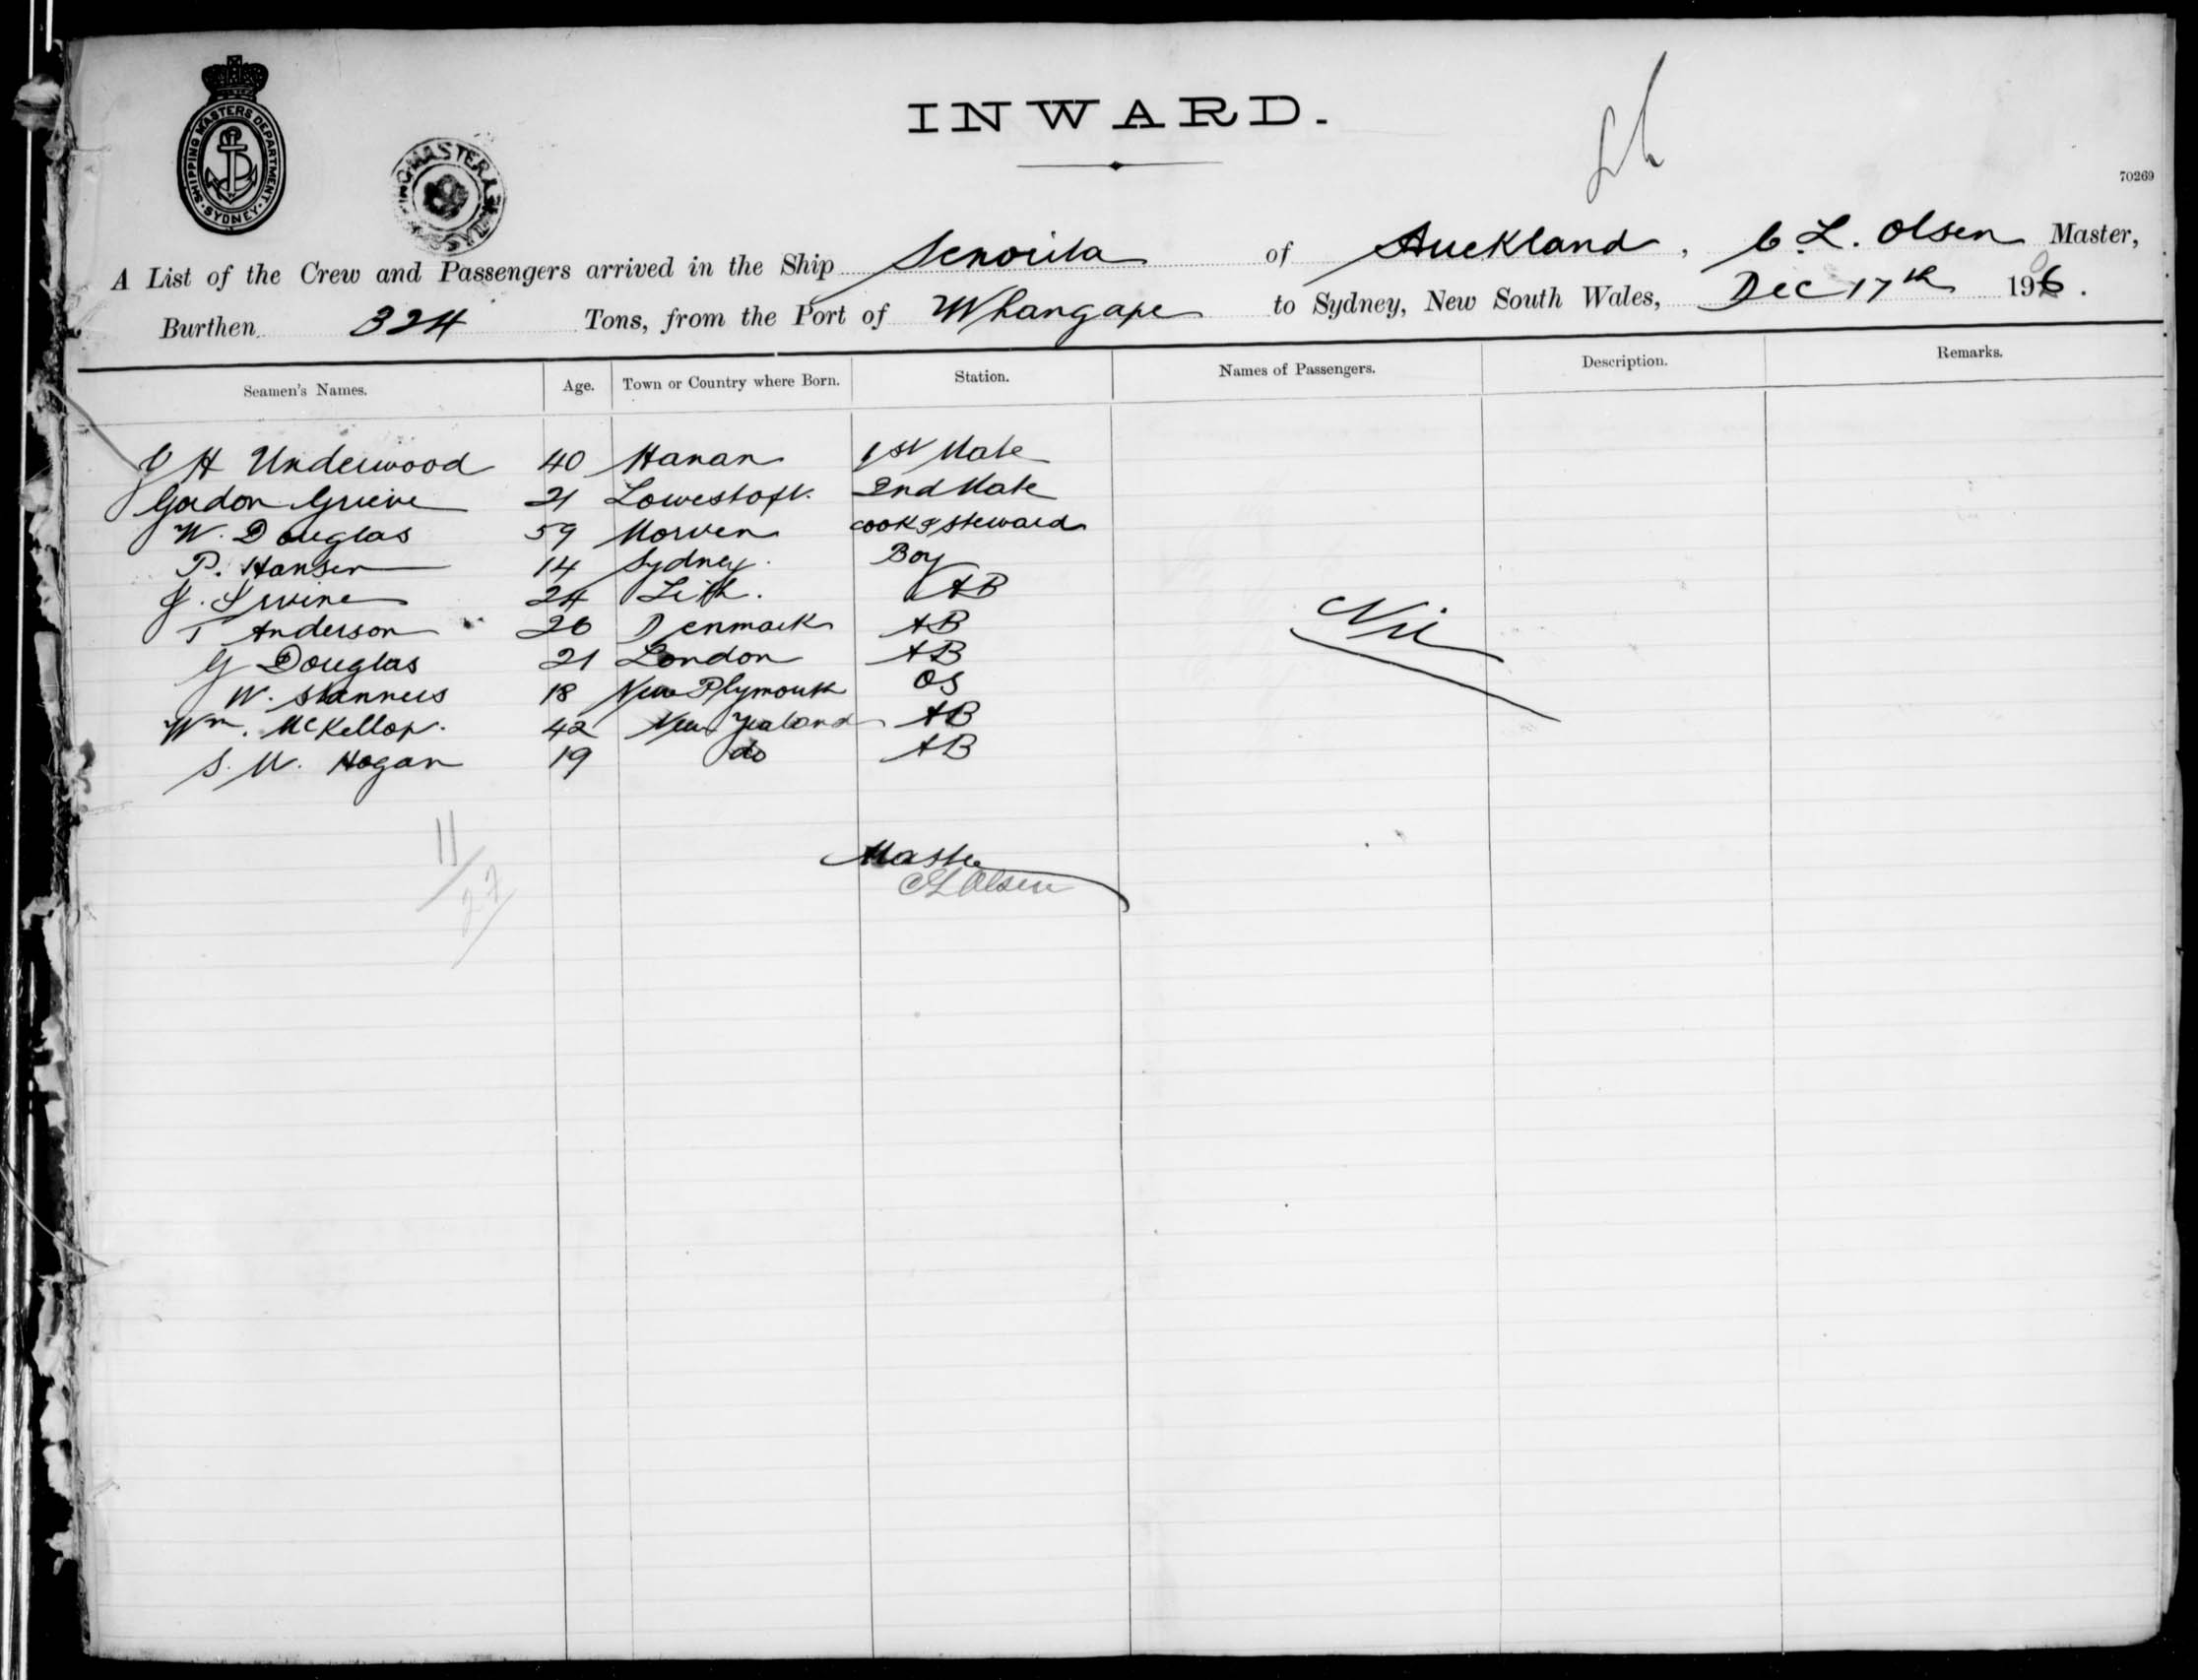 SHIPPING MASTERS DEPARTMENT
SYDNEY
INWARD.
70269
A List of the Crew and Passengers arrived in the Ship Senorita of Auckland, C. L. Olsen Master,
Burthen 324 Tons, from the Port of Whangape to Sydney, New South Wales, Dec 17th 1906.
Seamen's Names. Age. Town or Country where Born. Station. Names of Passengers. Description. Remarks.
J H Underwood 40 Hanan 1st Mate
Gordon Grieve 21 Lowestoft. 2nd Mate
W. Douglas 59 Morven cook & steward
P. Hansen 14 Sydney. Boy
J. Irvine 24 Lith. AB
T Anderson 26 Denmark AB
G Douglas 21 London AB
W. Stanners 18 New Plymouth OS
Wm. McKellop. 42 New Zealand AB
S. W. Hogan 19 do AB
Nil
Master
C L Olsen
11
27